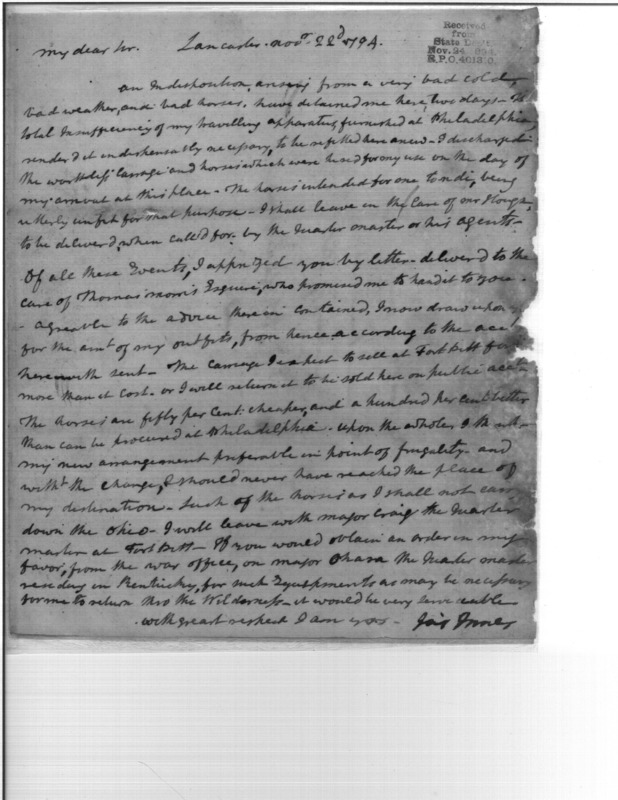 Received
from
State Dept.
Nov. 24, 1894
R.P.O. 401310.
my dear Sir. Lancaster. novr. 22d. 1794.
an Indisposition, arising from a very bad cold,
bad weather, and bad horses, have detained me here, two days - The
total Insufficiency of my travelling apparatus, furnished at Philadelphia,
renderd it indispensably necessary, to be refitted here anew - I discharged
the worthless Carriage and horses which were hired for my use on the day of
my arrival at this place - The horses intended for one to ride, being
utterly unfit for that purpose - I shall leave in the Care of
to be deliverd, when call'd for. by the Quarter master or his agents -
Of all these Events, I apprized you by letter - deliverd to the
care of Thomas morris Esquire, who promised me to hand it to you -
- agreable to the advice there in contained, I now draw upon
for the amt. of my outfits, from hence according to the acct
herewith sent - The Carriage I expect to sell at Fort Pitt for
more than it cost - or I will return it to be sold here on public acct -
The horses are fifty per Cent. cheaper, and a hundred per cent better
than can be procured at Philadelphia - upon the whole, I think
my new arrangement preferable in point of frugality - and
witht the change, I should never have reached the place of
my destination - Such of the horses as I shall not carry
down the Ohio - I will leave with major Craig the Quarter
master at Fort Pitt - If you would obtain an order in my
favor, from the war office, on major Ohara the Quarter master
residing in Kentucky, for such Equipments as may be necessary
for me to return thro the Wilderness - it would be very serviceable
with great respect I am yrs - Jas Innes